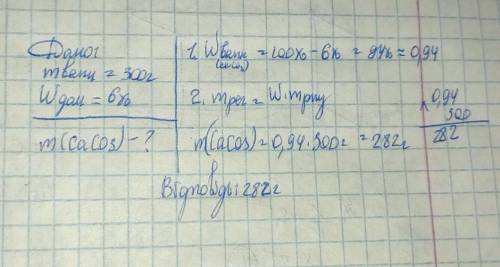 Дано:
mвапн = 300г
Wдом = 6%
m(CaCO3) - ?
1. Wвапн = 100% - 6% = 94% = 0,94
(CaCO3)
2. mреч = W·m
m(CaCO3) = 0,94·300г = 282г
× 0,94
300
282
Відповідь: 282г